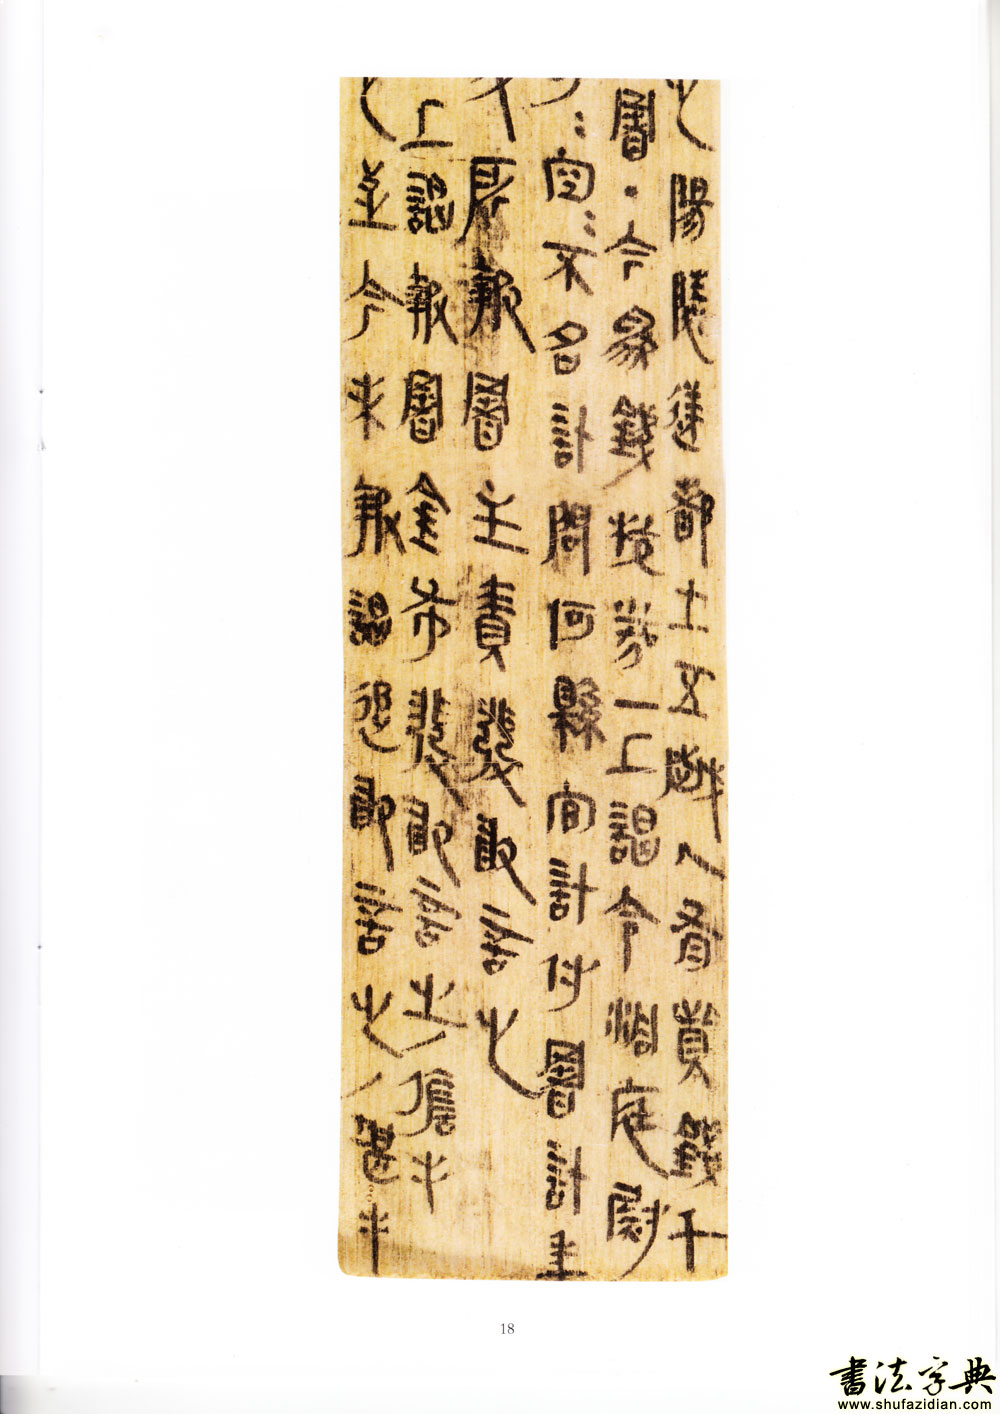 之陽陵逆都士五越人有貲錢千
署·今為錢校券一上謁令洞庭尉
司=空=不名計問何縣官計付署計年
報署主責發敢言之
上謁報署金布發敢言之/儋手
之至今未報謁追敢言之/堪手
18
書法字典
www.shufazidian.com